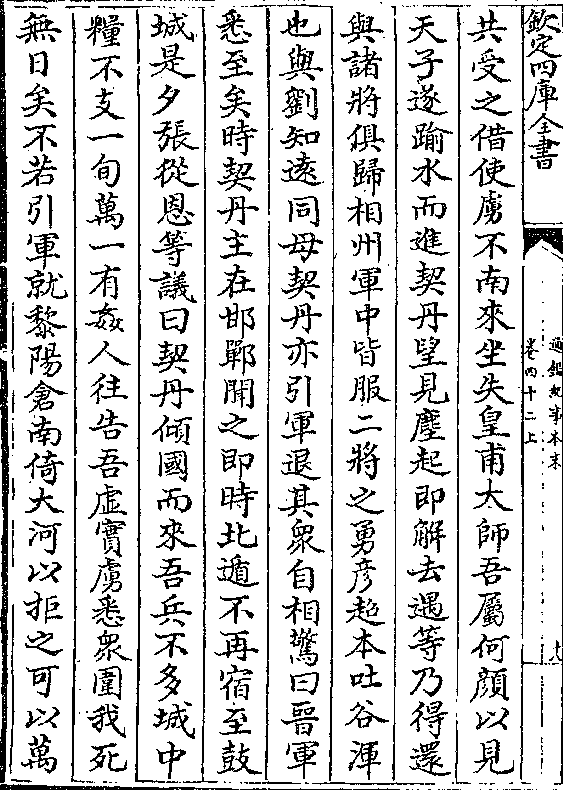 欽定四庫全書
通鑑紀事本末
卷四十二上
共受之借使虜不南來坐失皇甫太師吾屬何顏以見
天子遂踰水而進契丹望見塵起即解去遇等乃得還
與諸將俱歸相州軍中皆服二將之勇彦超本吐谷渾
也與劉知逺同母契丹亦引軍退其衆自相驚曰晉軍
悉至矣時契丹主在邯鄲聞之即時北遁不再宿至鼓
城是夕張從恩等議曰契丹傾國而來吾兵不多城中
糧不支一旬萬一有姦人往告吾虛實虜悉衆圍我死
無日矣不若引軍就黎陽倉南倚大河以拒之可以萬